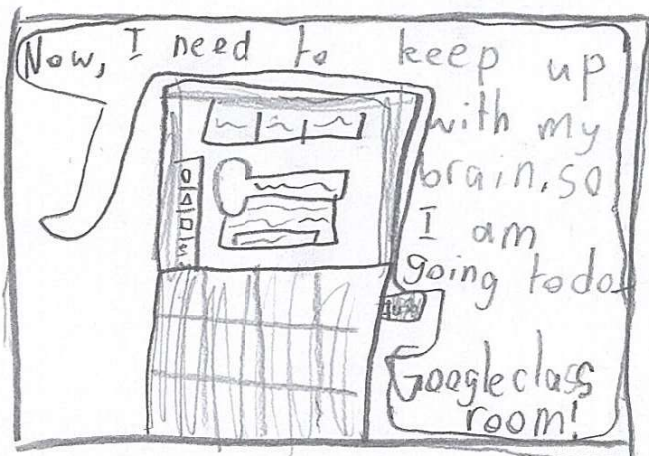 Now, I need to keep up
with my
brain, so
I am
going to do
Google class
room!